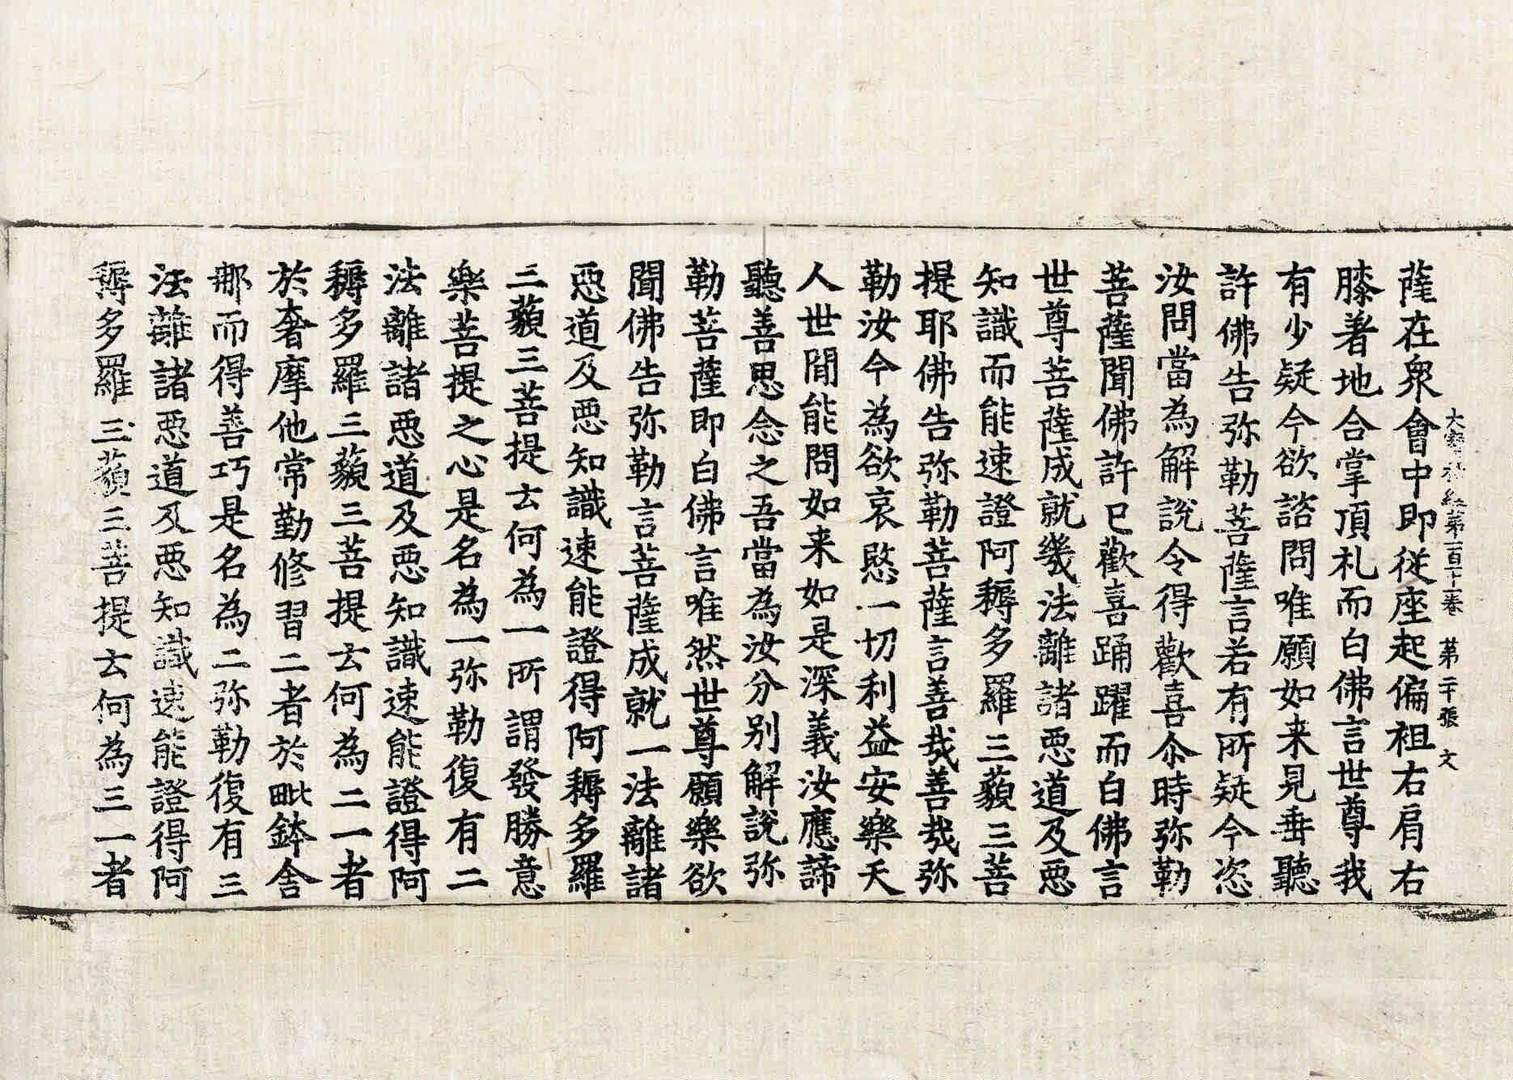 大寶積經第一百十一卷 第二十張 文
薩在衆會中即從座起偏袒右肩右
膝著地合掌頂礼而白佛言世尊我
有少疑今欲諮問唯願如来見垂聽
許佛告弥勒菩薩言若有所疑今恣
汝問當為解說令得歡喜尒時弥勒
菩薩聞佛許已歡喜踊躍而白佛言
世尊菩薩成就幾法離諸悪道及悪
知識而能速證阿耨多羅三藐三菩
提耶佛告弥勒菩薩言善哉善哉弥
勒汝今為欲哀愍一切利益安樂天
人世間能問如来如是深義汝應諦
聽善思念之吾當為汝分别解說弥
勒菩薩即白佛言唯然世尊願樂欲
聞佛告弥勒言菩薩成就一法離諸
悪道及悪知識速能證得阿耨多羅
三藐三菩提云何為一所謂發勝意
樂菩提之心是名為一弥勒復有二
法離諸悪道及悪知識速能證得阿
耨多羅三藐三菩提云何為二一者
於奢摩他常勤修習二者於毗鉢舍
那而得善巧是名為二弥勒復有三
法離諸悪道及悪知識速能證得阿
耨多羅三藐三菩提云何為三一者